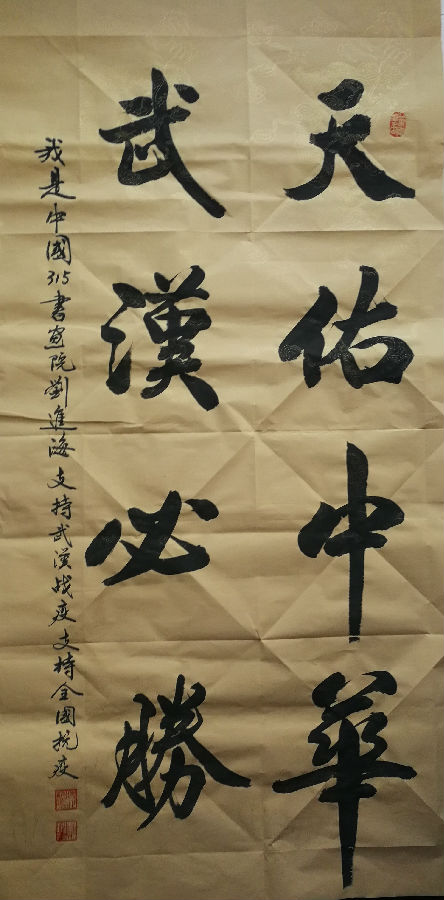 天佑中華
武漢必勝
我是中國315書画院劉進海支持武漢战疫支持全國抗疫